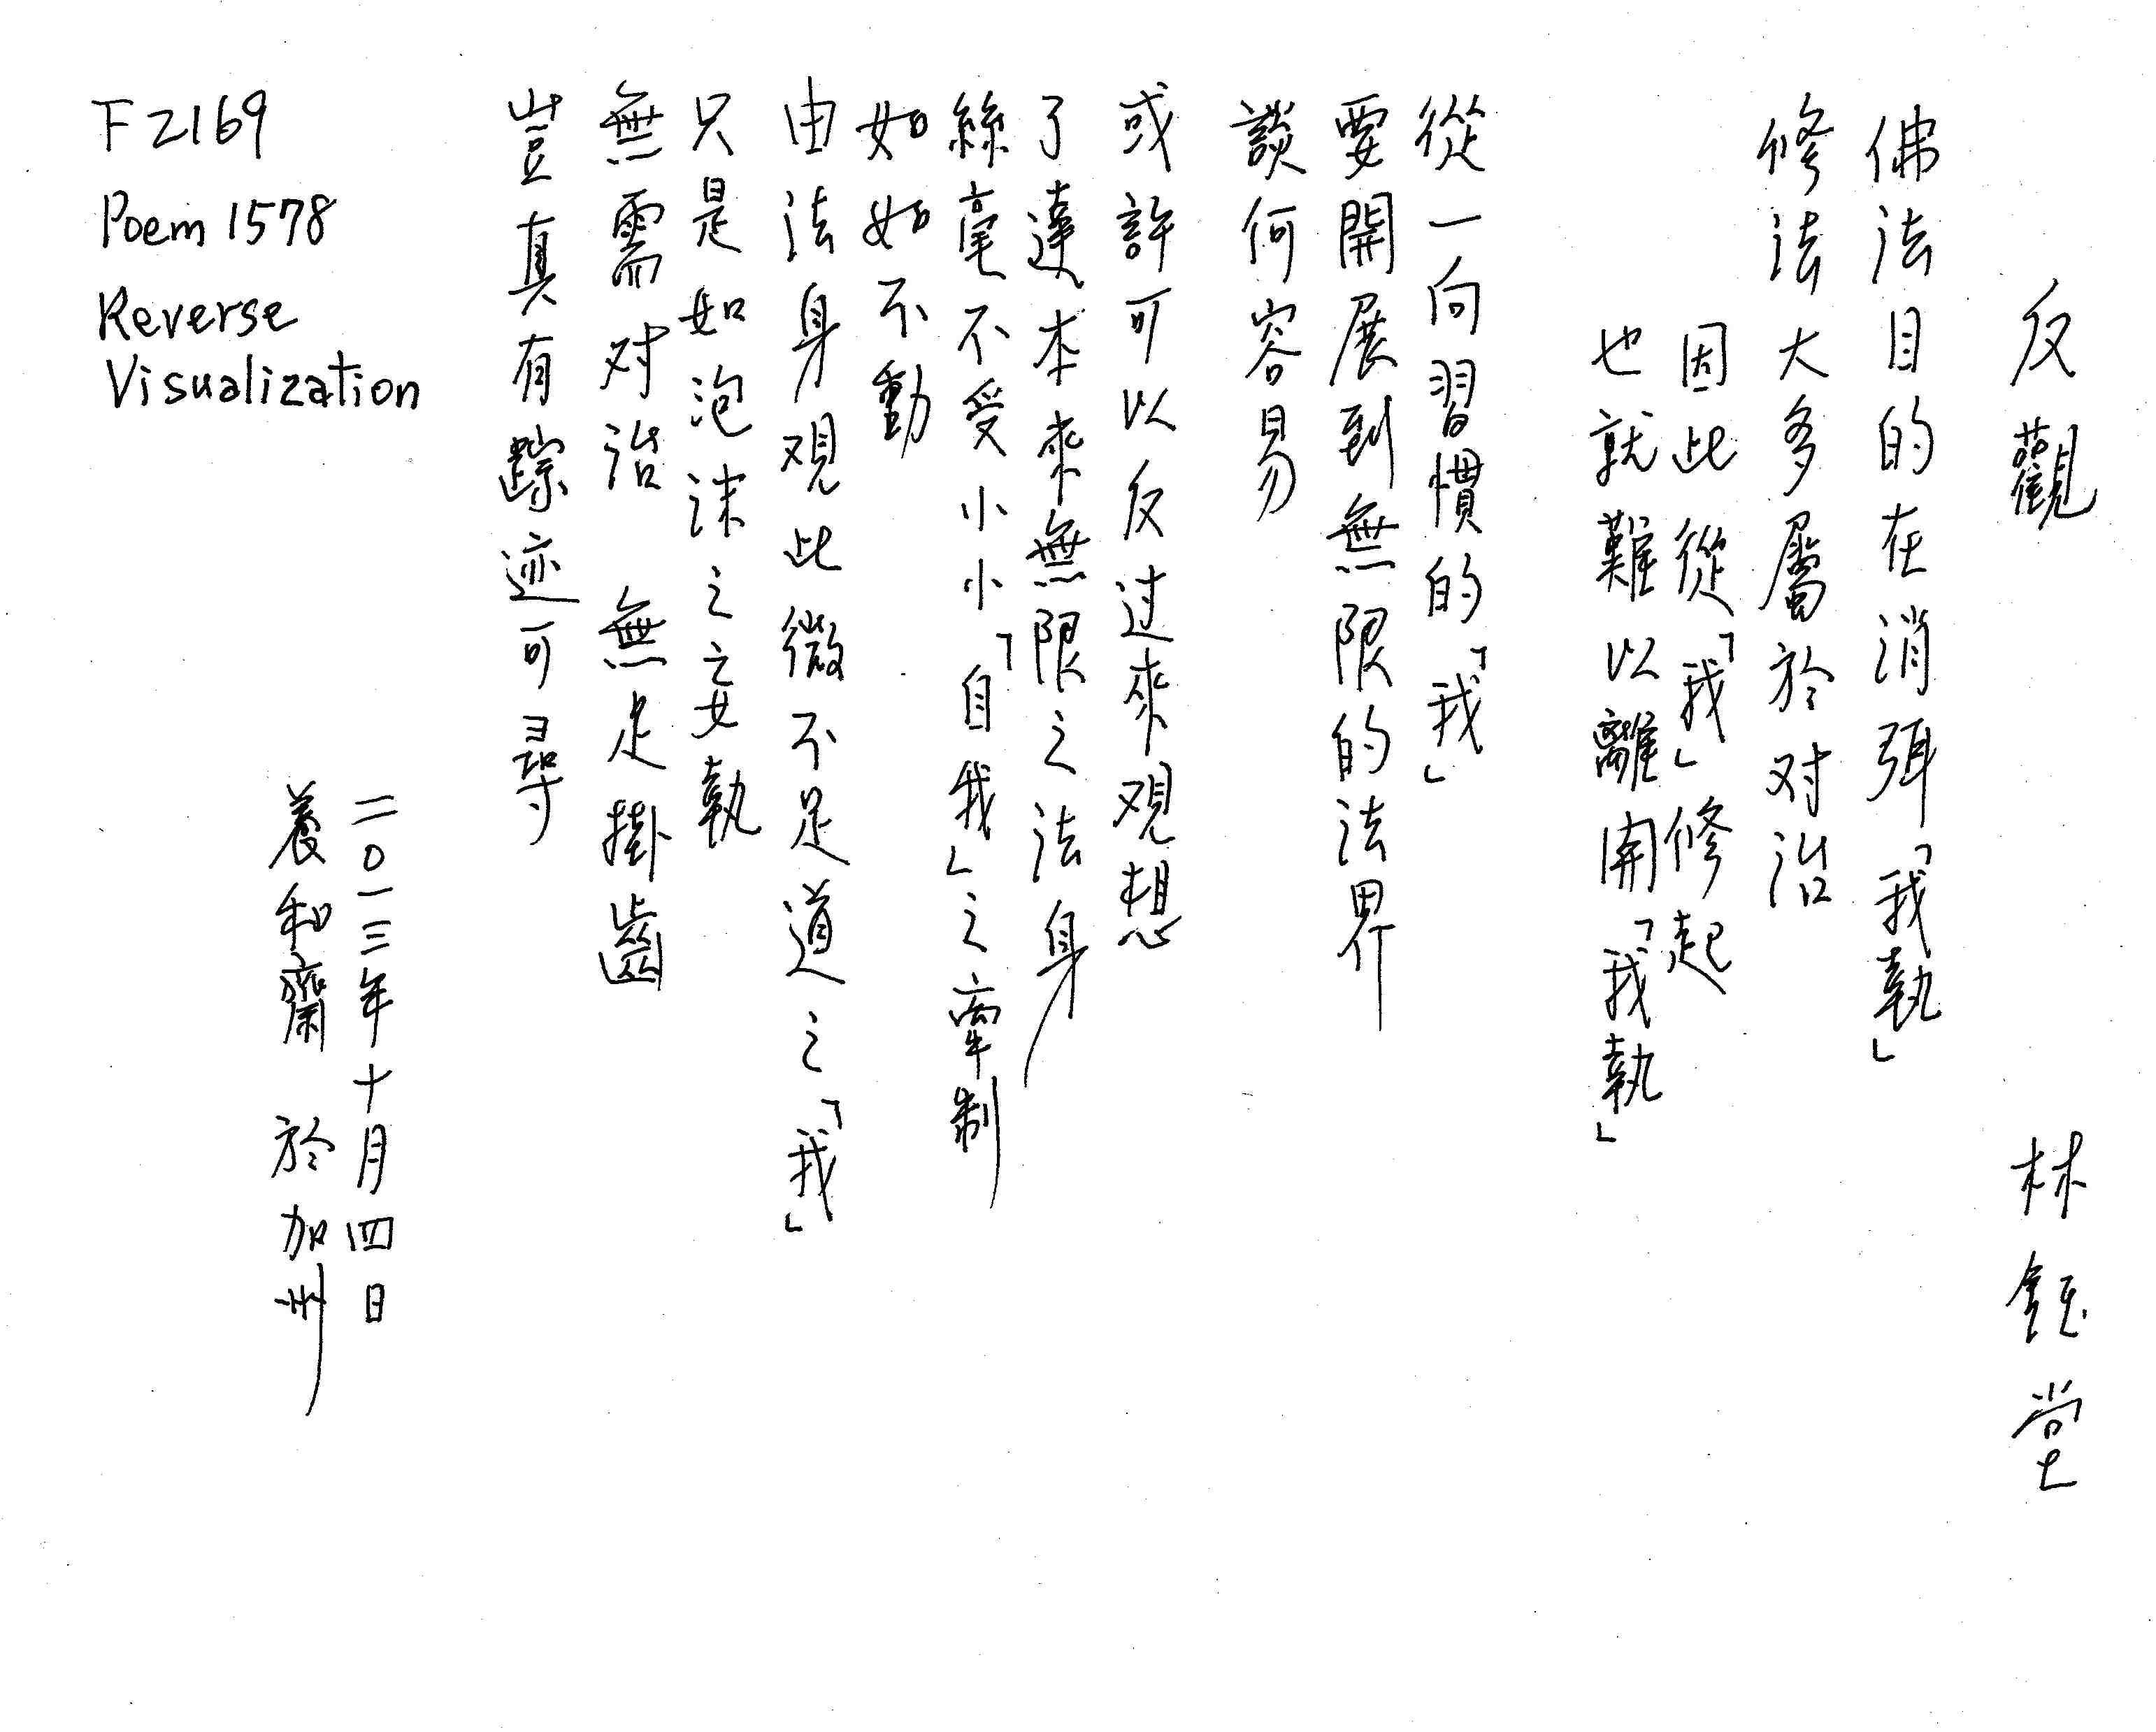 反觀 林鈺堂
佛法目的在消弭「我執」
修法大多屬於对治
因此從「我」修起
也就難以離開「我執」
從一向習慣的「我」
要開展到無限的法界
談何容易
或許可以反过來观想
了達本來無限之法身
絲毫不受小小「自我」之牽制
如如不動
由法身观此微不足道之「我」
只是如泡沫之妄執
無需对治 無足掛齒
豈真有踪迹可尋
二〇一三年十月四日
養和齋 於加州
F2169
Poem 1578
Reverse
Visualization